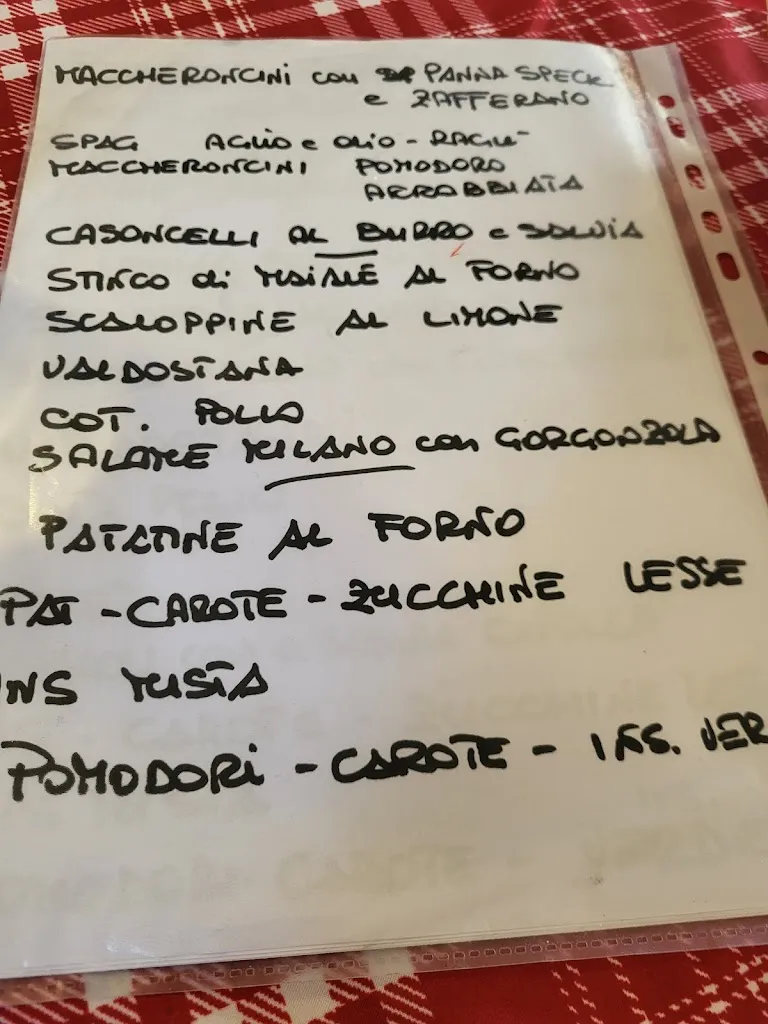 MACCHERONCINI con PANNA SPECK
e ZAFFERANO
SPAG AGLIO e OLIO - RAGU'
MACCHERONCINI POMODORO
ARRABBIATA
CASONCELLI AL BURRO e SALVIA
STINCO di MAIALE AL FORNO
SCALOPPINE AL LIMONE
VALDOSTANA
COT. POLLO
SALAME MILANO con GORGONZOLA
PATATINE AL FORNO
PAT - CAROTE - ZUCCHINE LESSE
INS MISTA
POMODORI - CAROTE - INS. VER